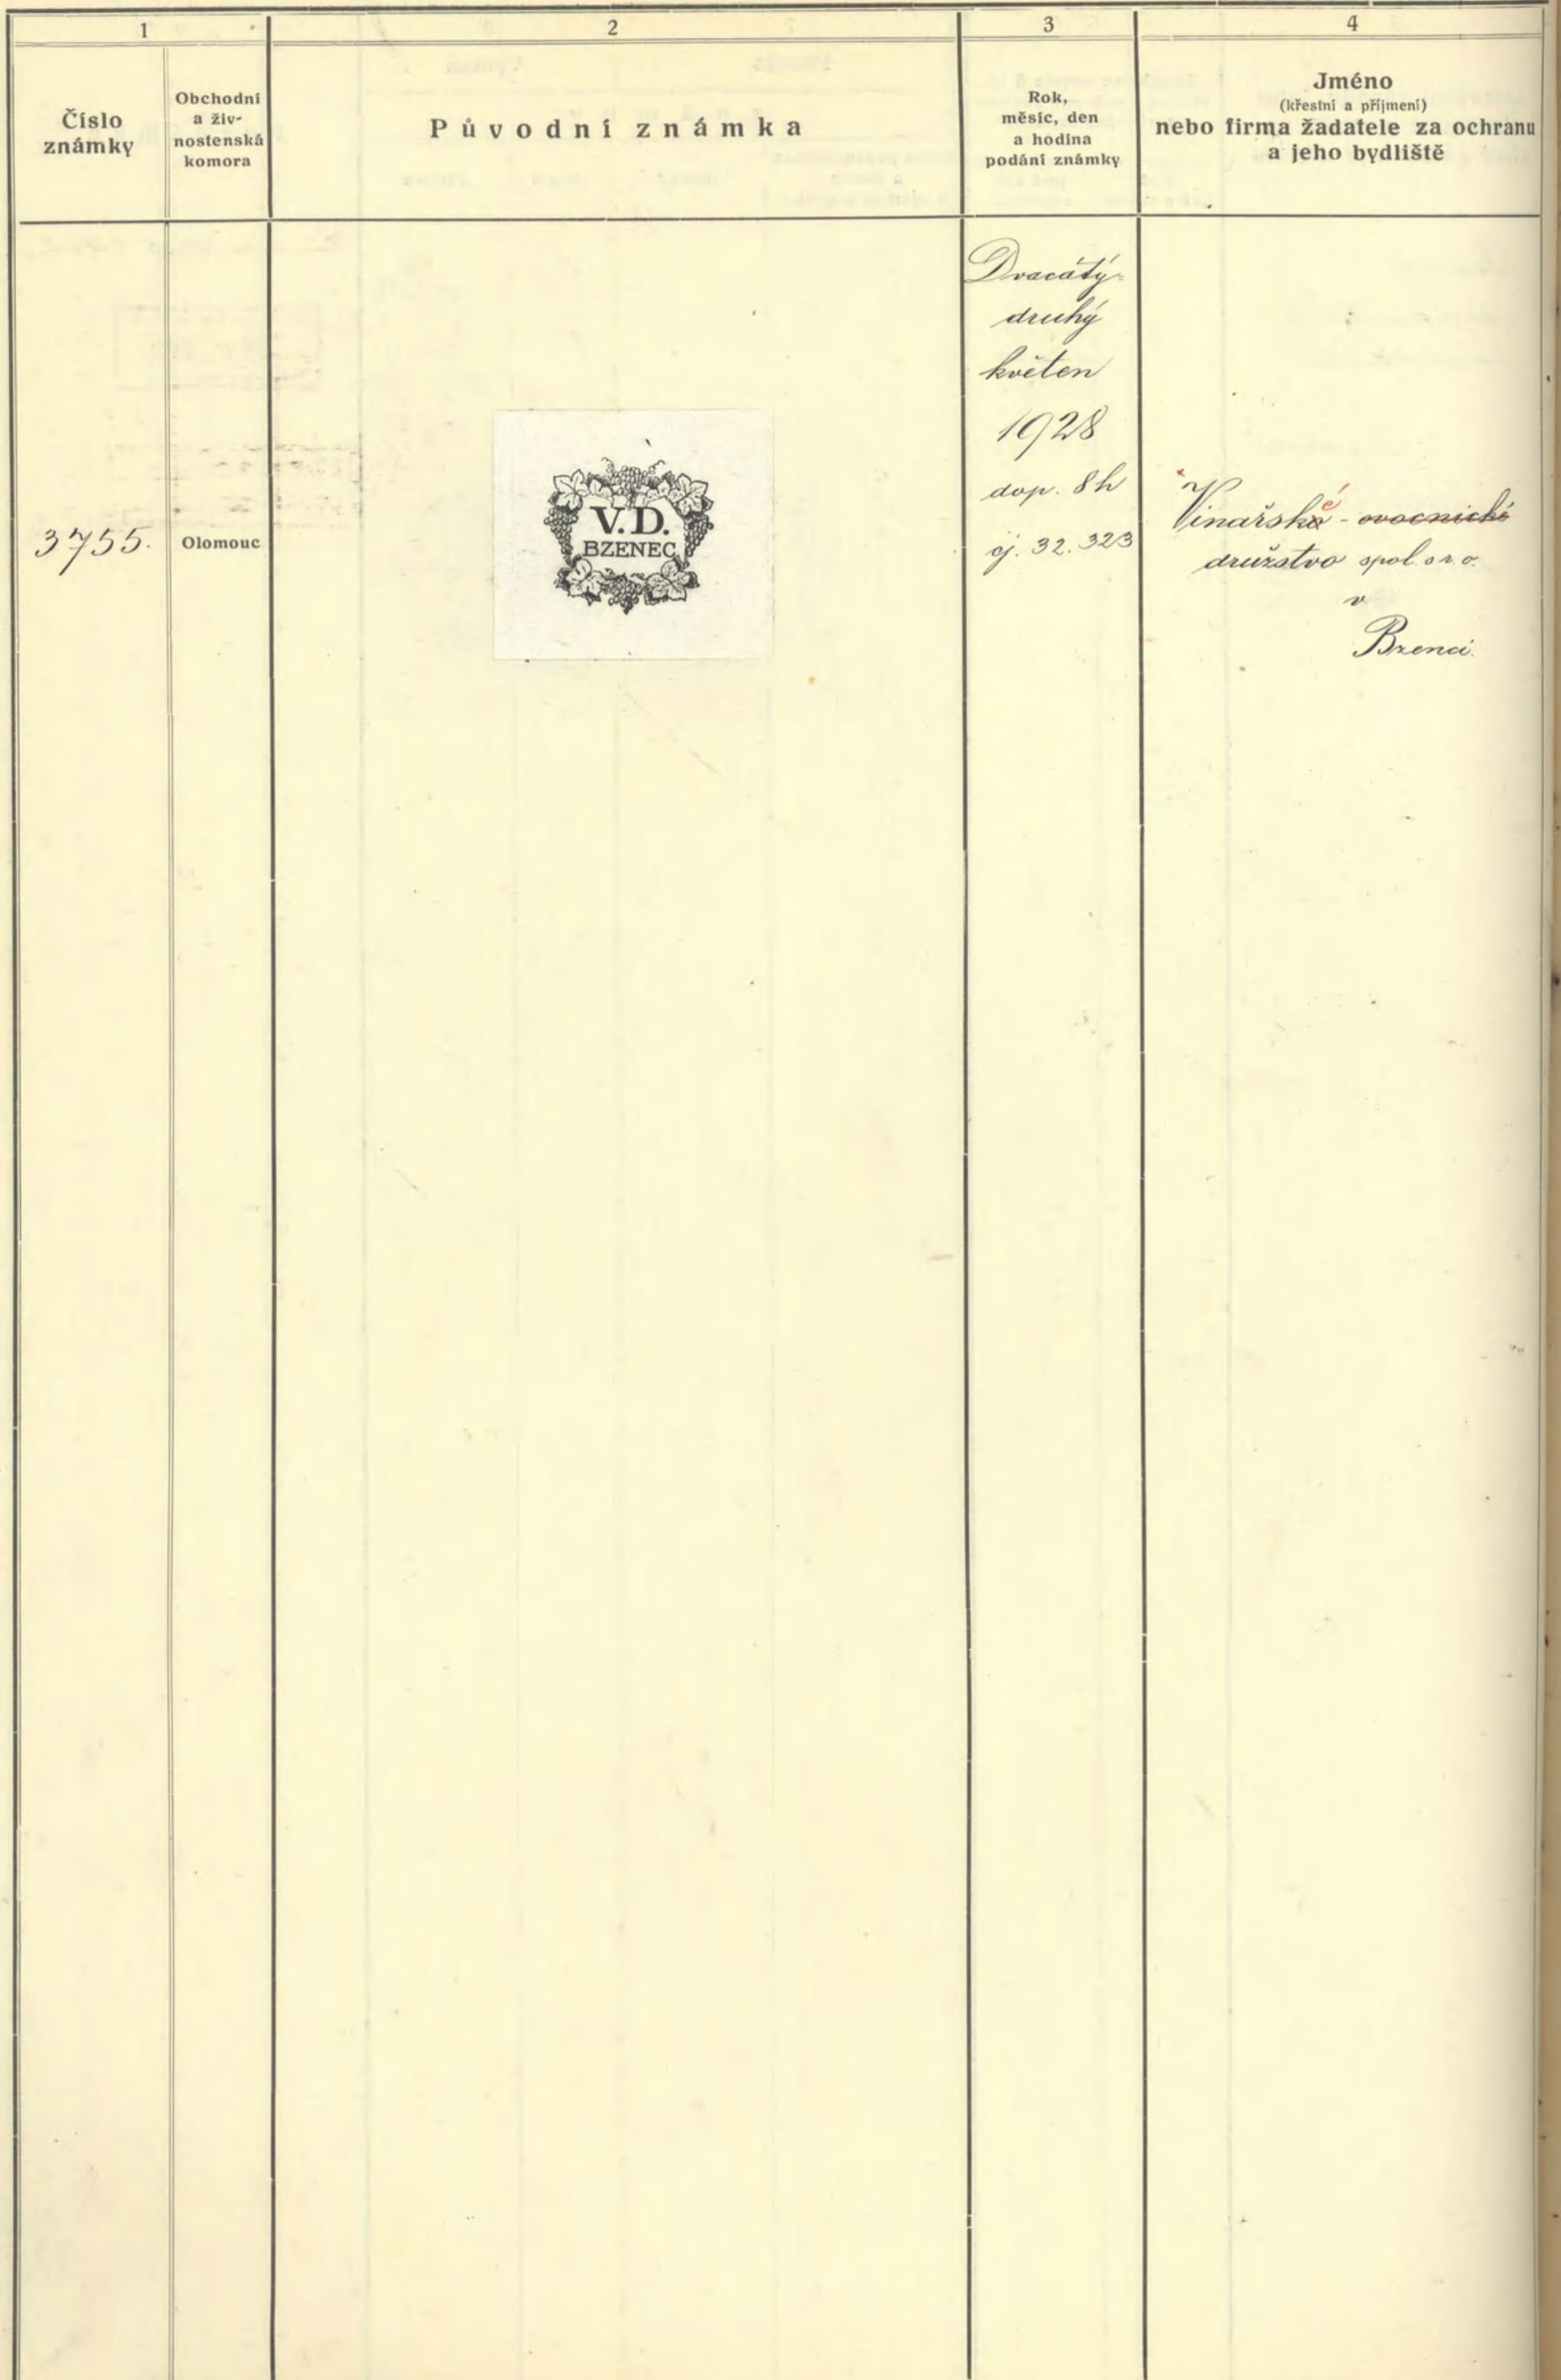 1
2
3
4
Číslo
známky
Obchodní
a živ-
nostenská
komora
Původní známka
Rok,
měsíc, den
a hodina
podání známky
Jméno
(křestní a příjmení)
nebo firma žadatele za ochranu
a jeho bydliště
3755.
Olomouc
V.D.
BZENEC
Dvacátý-
druhý
květen
1928
dop. 8h
čj. 32.323
Vinařské - ovocnické
družstvo spol. s r. o.
v
Bzenci.